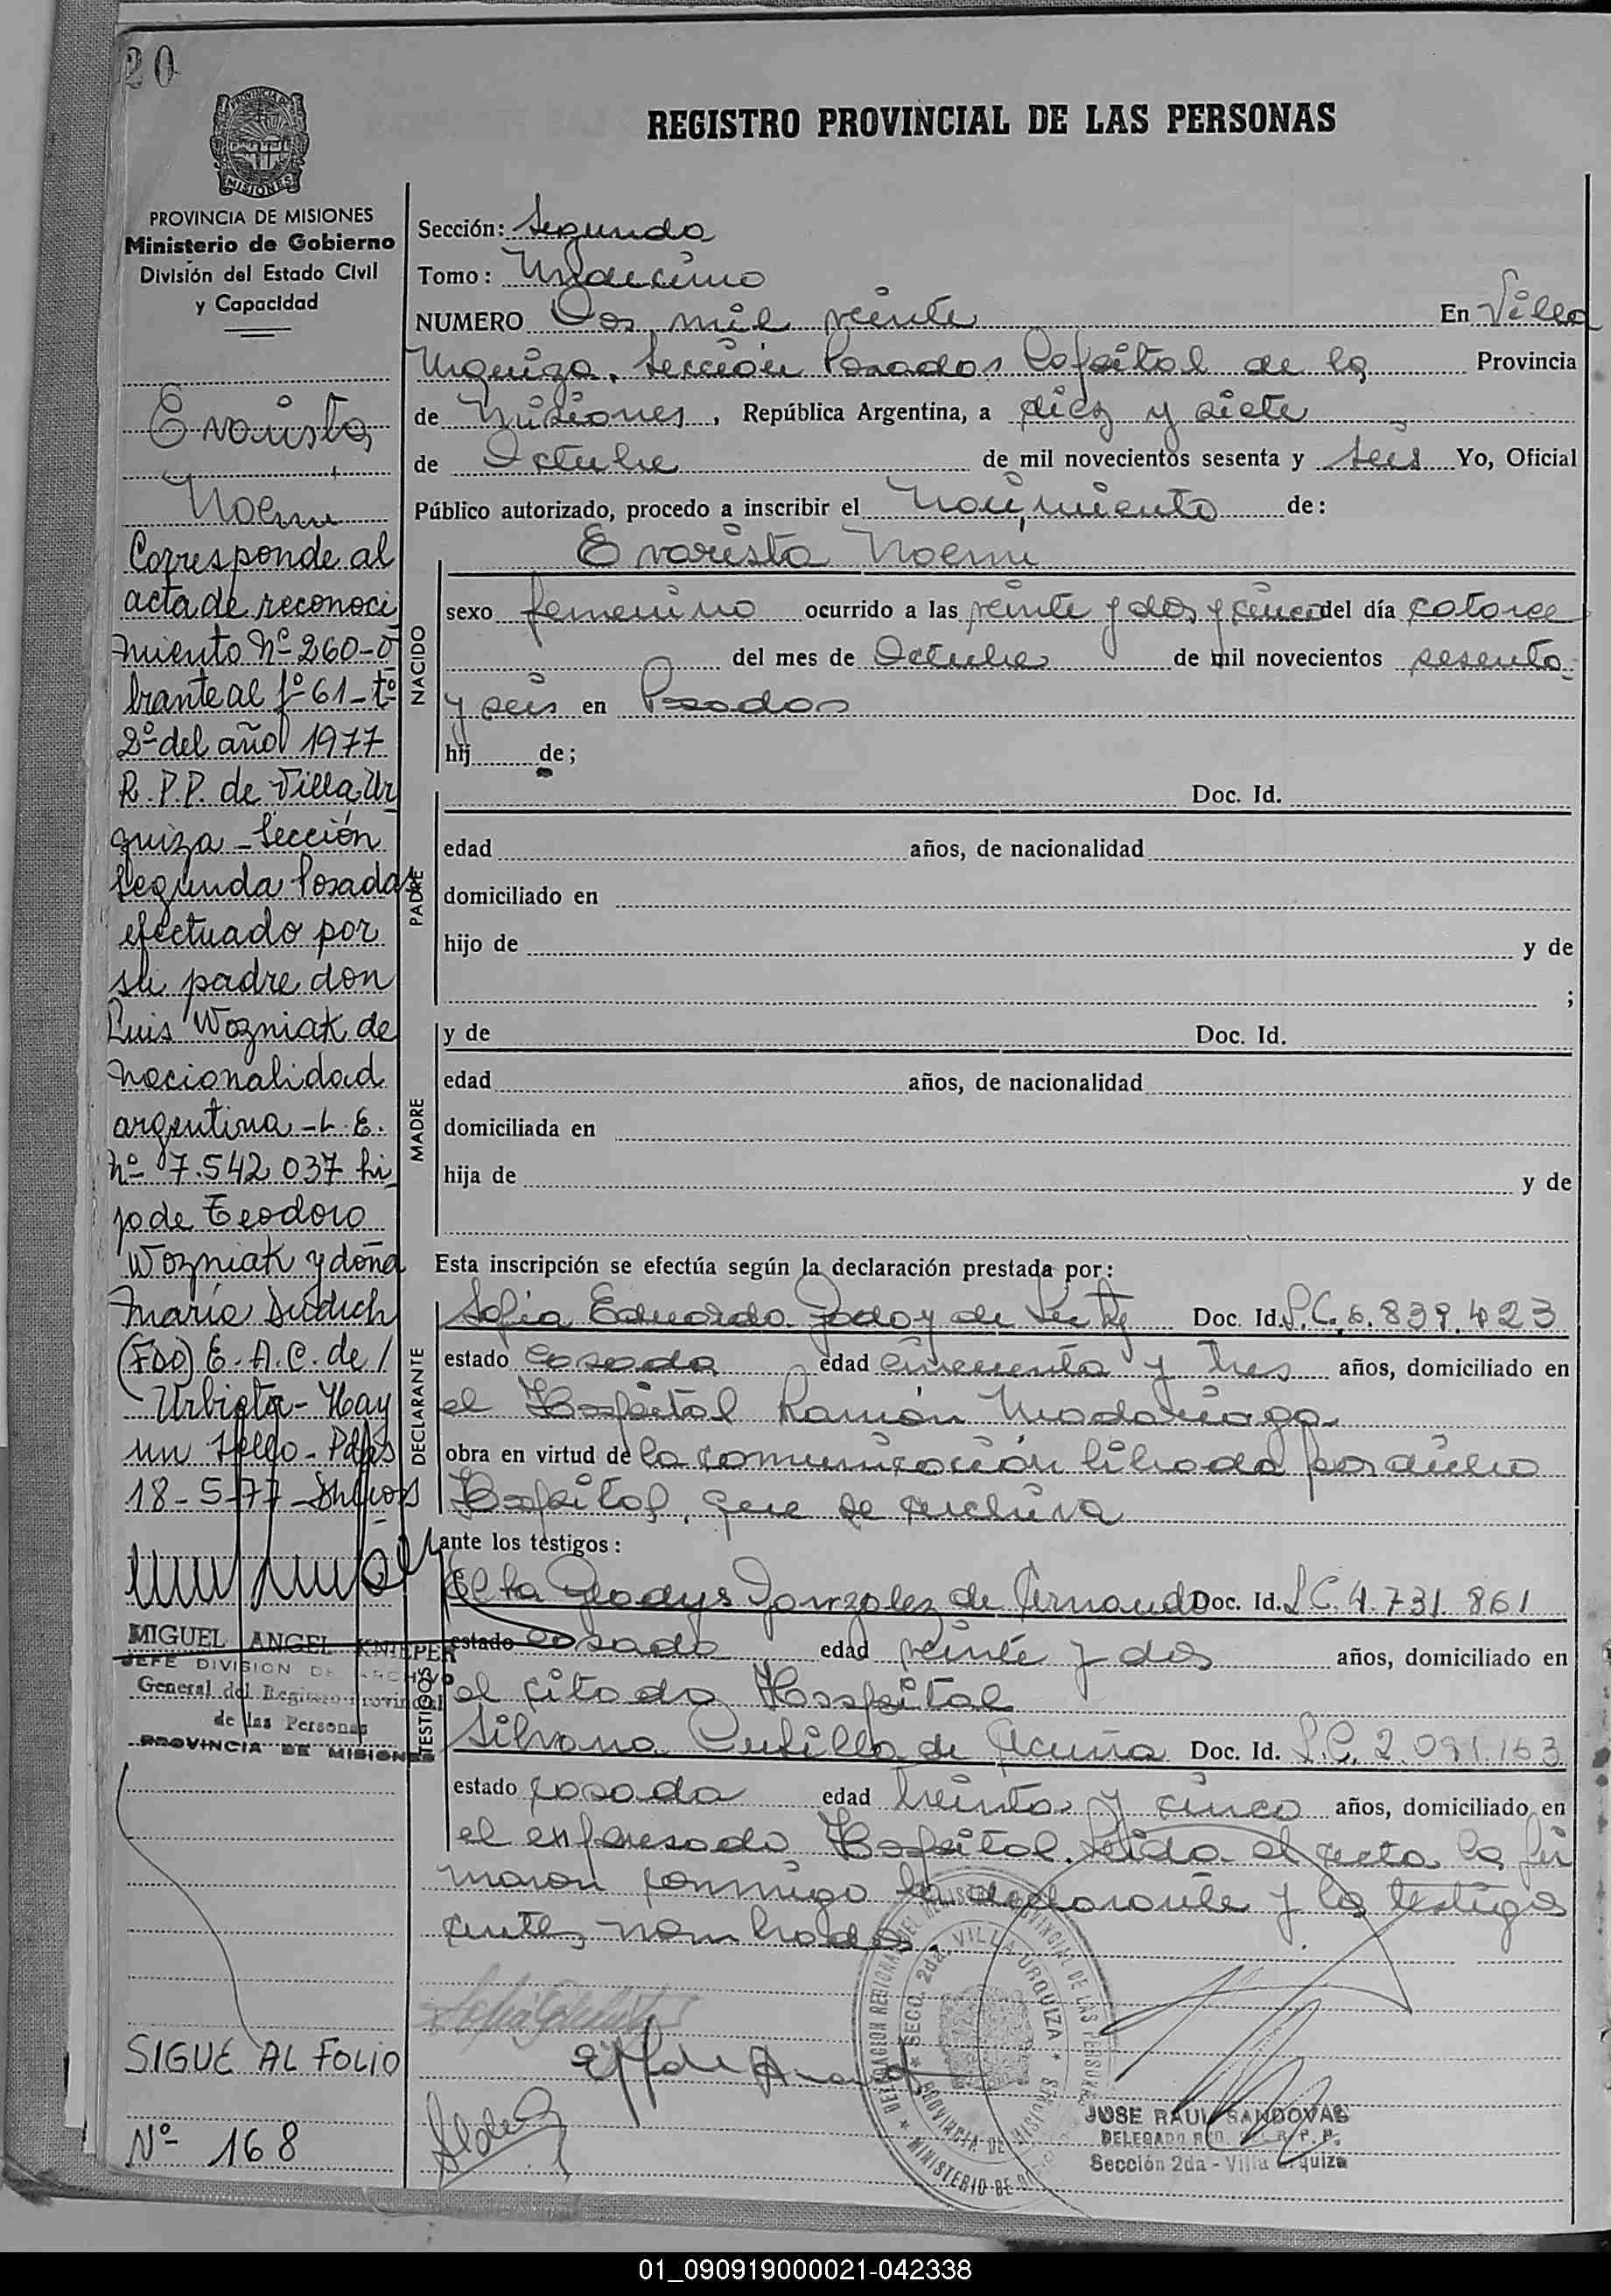 20
REGISTRO PROVINCIAL DE LAS PERSONAS
PROVINCIA DE MISIONES
MISIONES
PROVINCIA DE MISIONES
Ministerio de Gobierno
División del Estado Civil
y Capacidad
Evarista
Noemi
Corresponde al
acta de reconoci
miento Nº 260-o
brante al fº 61-tº
2º del año 1977
R.P.P. de Villa Ur
quiza - Sección
Segunda Posadas
efectuado por
su padre don
Luis Wozniak de
nacionalidad
argentina - L.E.
Nº 7.542.037 hi
jo de Teodoro
Wozniak y doña
María Dudich
(FDO) E.A.C. de /
Urbieta - Hay
un sello - Pdas
18-5-77
MIGUEL ANGEL KNIEPER
JEFE DIVISION DE ARCHIVO
General del Registro Provincial
de las Personas
PROVINCIA DE MISIONES
SIGUE AL FOLIO
Nº 168
Sección: Segunda
Tomo: Undecimo
NUMERO Dos mil veinte En Villa
Urquiza, Sección Posadas Capital de la Provincia
de Misiones, República Argentina, a diez y siete
de Octubre de mil novecientos sesenta y seis Yo, Oficial
Público autorizado, procedo a inscribir el Nacimiento de:
Evarista Noemi
NACIDO
sexo femenino ocurrido a las veinte y dos y cinco del día catorce
del mes de Octubre de mil novecientos sesenta
y seis en Posadas
hij de;
PADRE
Doc. Id.
edad años, de nacionalidad
domiciliado en
hijo de y de
;
MADRE
y de Doc. Id.
edad años, de nacionalidad
domiciliada en
hija de y de
Esta inscripción se efectúa según la declaración prestada por:
DECLARANTE
Sofia Eduarda Godoy de Doc. Id. L.C. 6.839.423
estado casada edad cincuenta y tres años, domiciliado en
el Hospital Ramón Madariaga
obra en virtud de la comunicación librada por dicho
Hospital, que se archiva
ante los testigos:
TESTIGOS
Gladys Gonzalez de Doc. Id. L.C. 4.731.861
estado casada edad veinte y dos años, domiciliado en
el citado Hospital
Silvana de Acuña Doc. Id. L.C. 2.091.163
estado casada edad treinta y cinco años, domiciliado en
el expresado Hospital. Leida el acta la fir
maron conmigo la declarante y los testigos
antes nombrados.
DELEGACION REGIONAL DEL REGISTRO PROVINCIAL DE LAS PERSONAS
SECC. 2da. VILLA URQUIZA
PROVINCIA DE MISIONES
MINISTERIO DE
JOSE RAUL SANDOVAL
DELEGADO REG. DEL R. P. P.
Sección 2da - Villa Urquiza
01_090919000021-042338